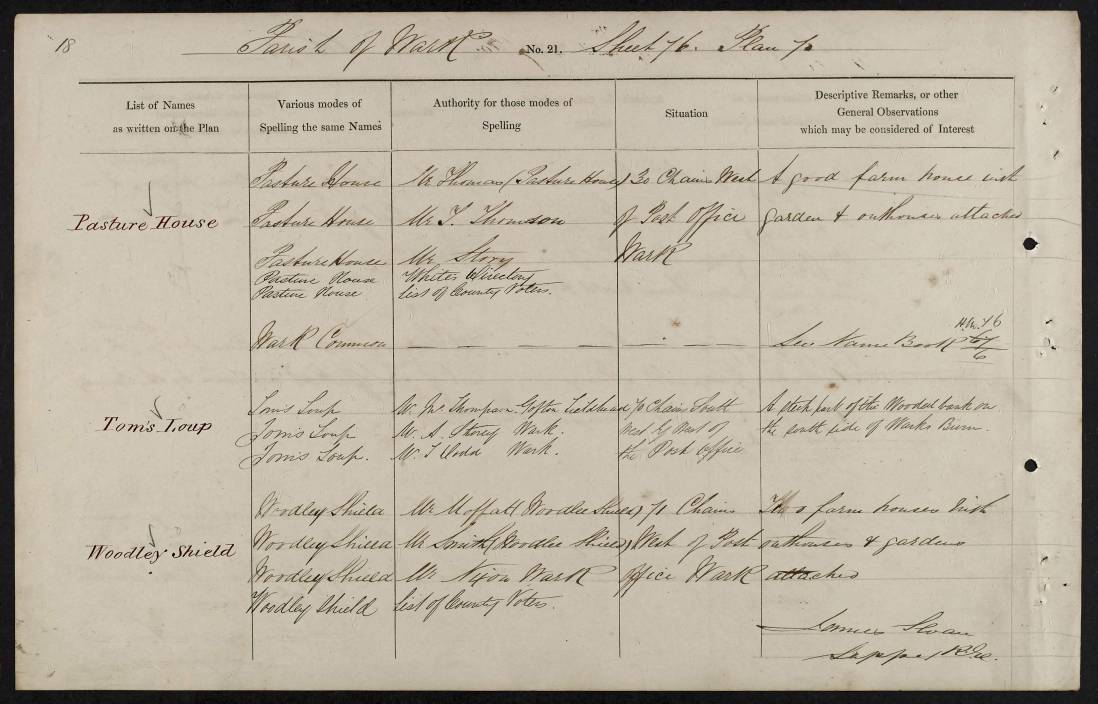 18
Parish of Wark No. 21. Sheet 76. Plan 7
List of Names
as written on the Plan
Various modes of
Spelling the same Names
Authority for those modes of
Spelling
Situation
Descriptive Remarks, or other
General Observations
which may be considered of Interest
Pasture House
Pasture House Mr Thomas (Pasture House) 30 Chains West A good farm house with
Pasture House Mr T. Thomson of Post Office garden & outhouses attached
Pasture House Mr Story Wark
Pasture House Whites Directory
Pasture House List of County Voters.
Wark Common — — — — — — — See Name Book
Toms Loup
Toms Loup Mr Jno. Thompson Gofton Fieldhead 70 Chains South A steep part of the Wooded bank on
Toms Loup Mr A. Storey Wark. West by West of the south side of Warks Burn.
Toms Loup. Mr T Dodd Wark. the Post Office
Woodley Shield
Woodley Shield Mr Moffatt (Woodlee Shield) 71 Chains Two farm houses with
Woodley Shield Mr Smith (Woodlee Shield) West of Post outhouses & gardens
Woodley Shield Mr Nixon Wark Office Wark attached
Woodley Shield List of County Voters.
James Sloan
Sapper R.E.